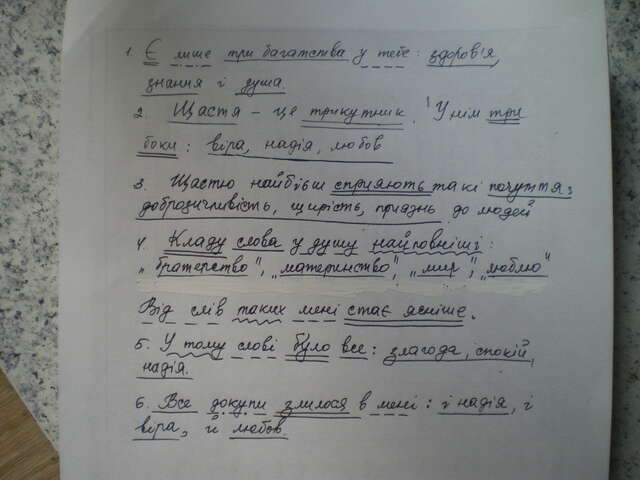 1. Є лише три багатства у тебе: здоров'я,
знання і душа.
2. Щастя – це трикутник. У нім три
боки: віра, надія, любов
3. Щастю найбільш сприяють такі почуття:
доброзичливість, щирість, приязнь до людей
4. Кладу слова у душу найповніші:
„братерство", „материнство", „мир", „люблю"
Від слів таких мені стає ясніше.
5. У тому слові було все: злагода, спокій,
надія.
6. Все докупи злилося в мені: і надія, і
віра, й любов.